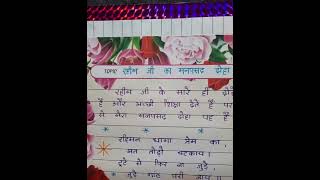 TOPIC रहीम जी का मनपसंद दोहा
रहीम जी के सारे ही दोहे
हैं और अच्छी शिक्षा देते हैं पर
से मेरा मनपसंद दोहा यह है
रहिमन धागा प्रेम का,
मत तोड़ो चटकाय।
टूटे से फिर ना जुड़े,
जुड़े गांठ परी जाय॥